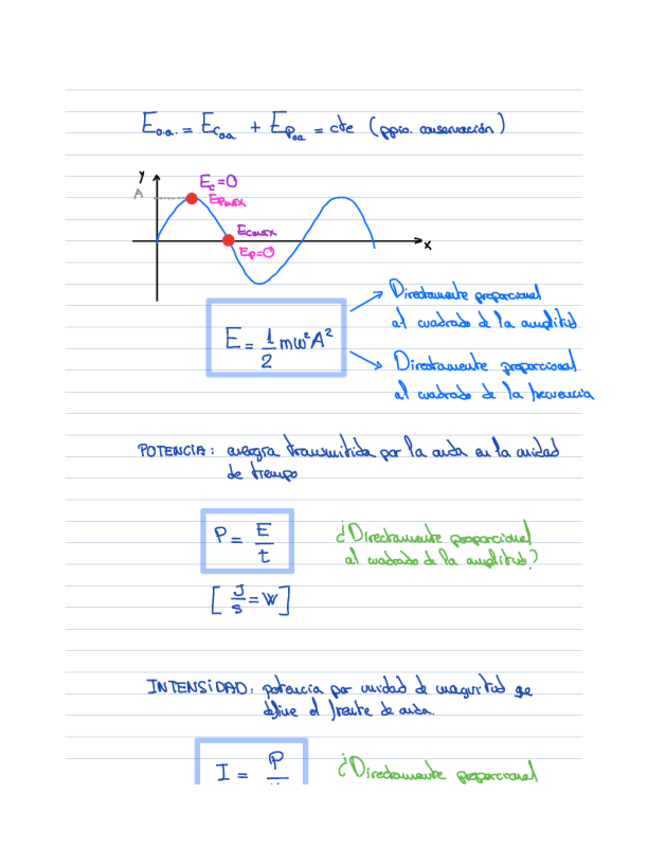 Eo.a. = Eco.a. + Epo.a. = cte (ppio. conservación)
y
A
Ec=0
Epmáx
Ecmáx
Ep=0
x
E = 1/2 mω²A²
Directamente proporcional
al cuadrado de la amplitud
Directamente proporcional
al cuadrado de la frecuencia
POTENCIA: energía transmitida por la onda en la unidad
de tiempo
P = E/t
¿Directamente proporcional
al cuadrado de la amplitud?
[J/s = W]
INTENSIDAD: potencia por unidad de magnitud que
define el frente de onda.
I = P
¿Directamente proporcional